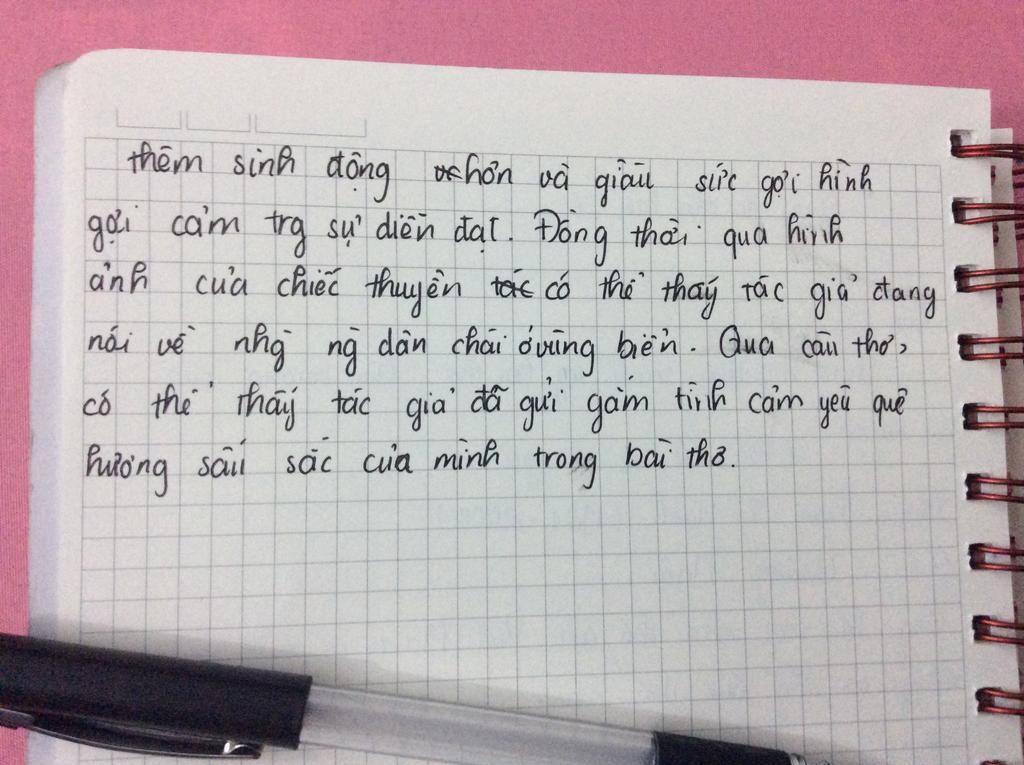 thêm sinh động hơn và giàu sức gợi hình
gợi cảm trg sự diễn đạt. Đồng thời qua hình
ảnh của chiếc thuyền có thể thấy tác giả đang
nói về nhg ng dân chài ở vùng biển. Qua câu thơ,
có thể thấy tác giả đã gửi gắm tình cảm yêu quê
hương sâu sắc của mình trong bài thơ.